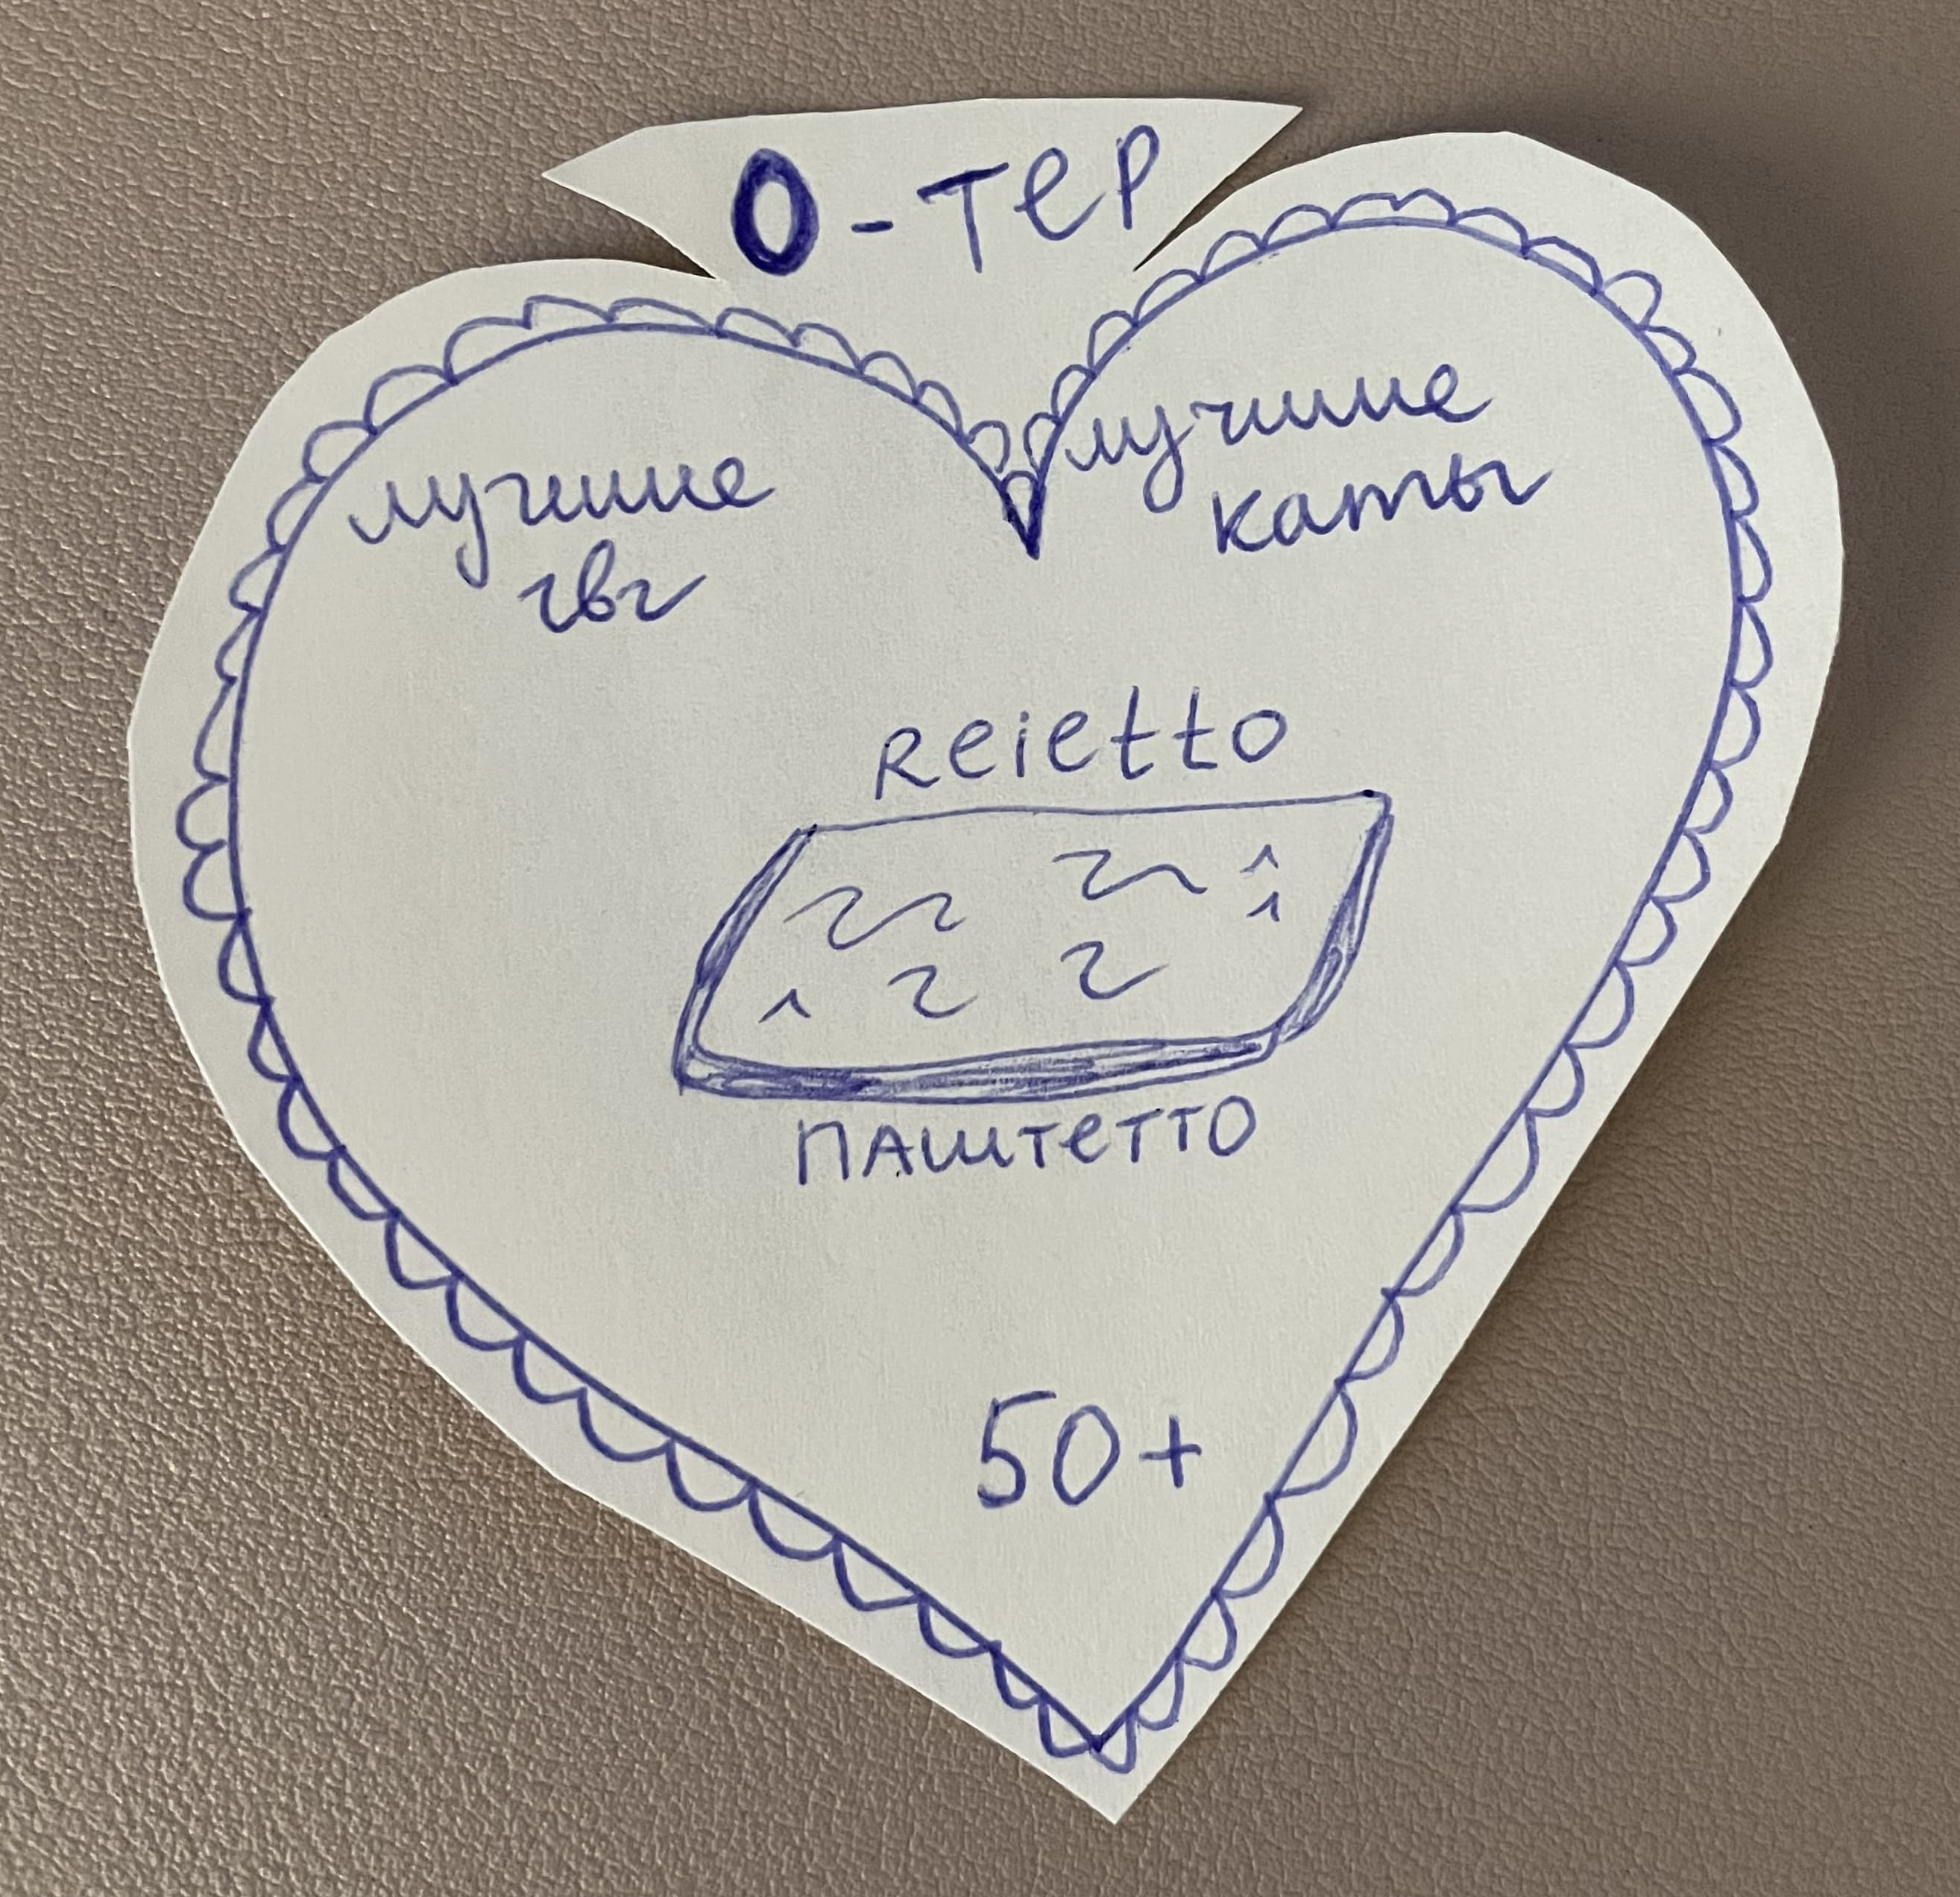 О-тер
лучшие
гвг
лучшие
каты
Reietto
паштетто
50+